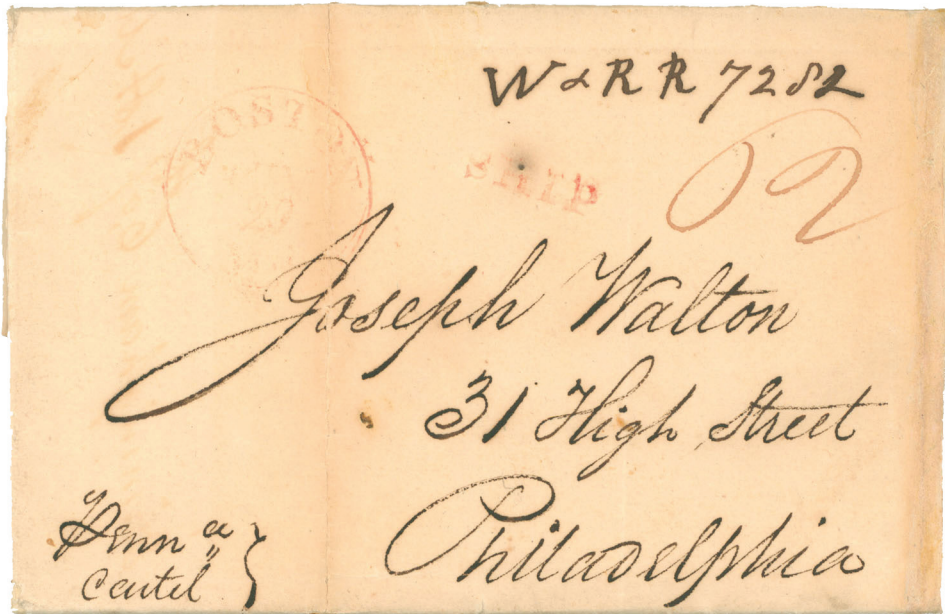 W & R R 7282
BOSTON
SHIP
62
Joseph Walton
31 High Street
Philadelphia
Penn a